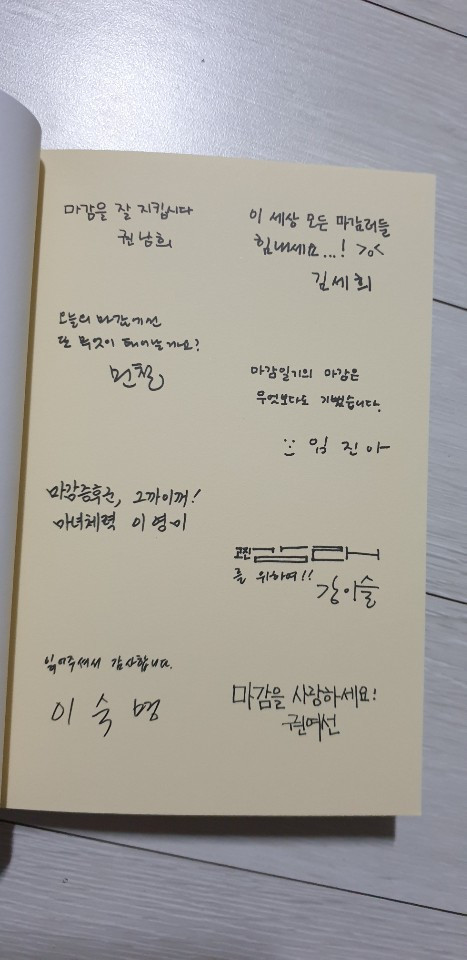 마감을 잘 지킵시다
권남희
이 세상 모든 마감러들
힘내세요...! >o<
김세희
오늘의 마감에선
또 무엇이 태어날까요?
마감일기의 마감은
무엇보다도 기뻤습니다.
임진아
마감증후군, 그까이꺼!
마녀체력 이영미
를 위하여!!
강이슬
읽어주셔서 감사합니다.
이숙명
마감을 사랑하세요!
권여선